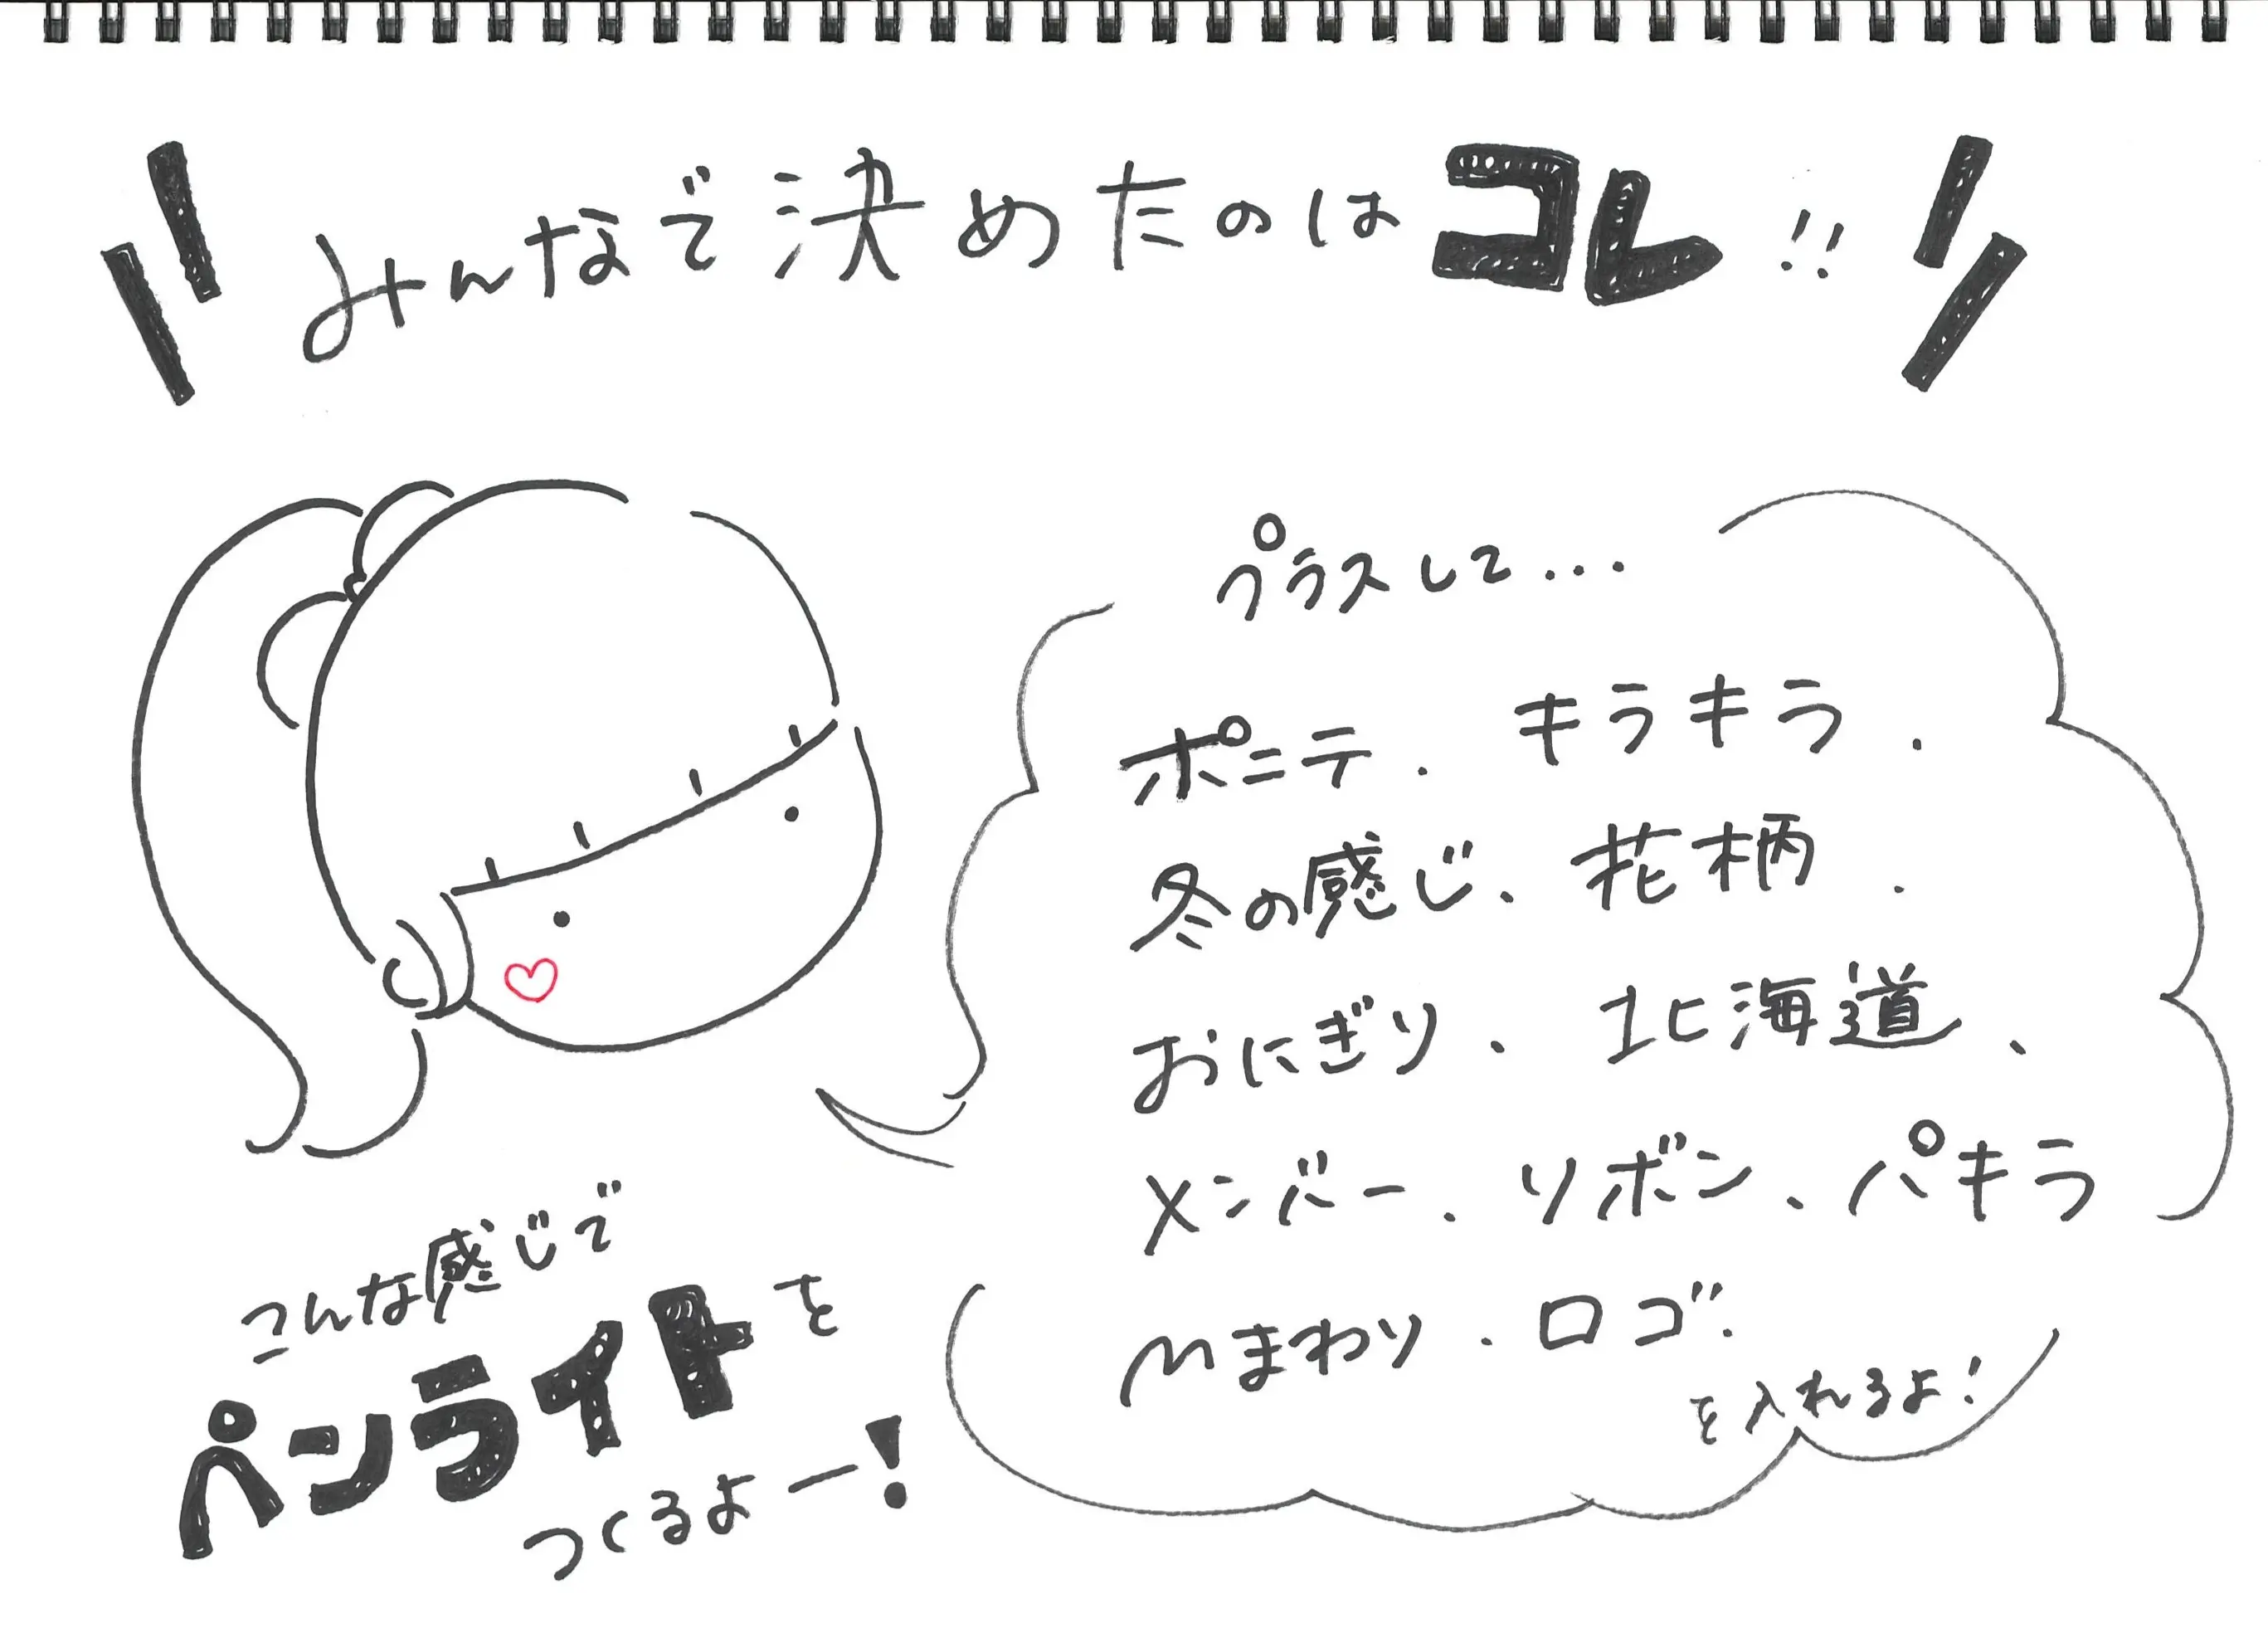 みんなで決めたのはコレ!!
プラスして...
ポニテ、キラキラ、
冬の感じ、花柄、
おにぎり、北海道、
メンバー、リボン、パキラ
ひまわり、ロゴ、
を入れるよ!
こんな感じで
ペンライトを
つくるよー!